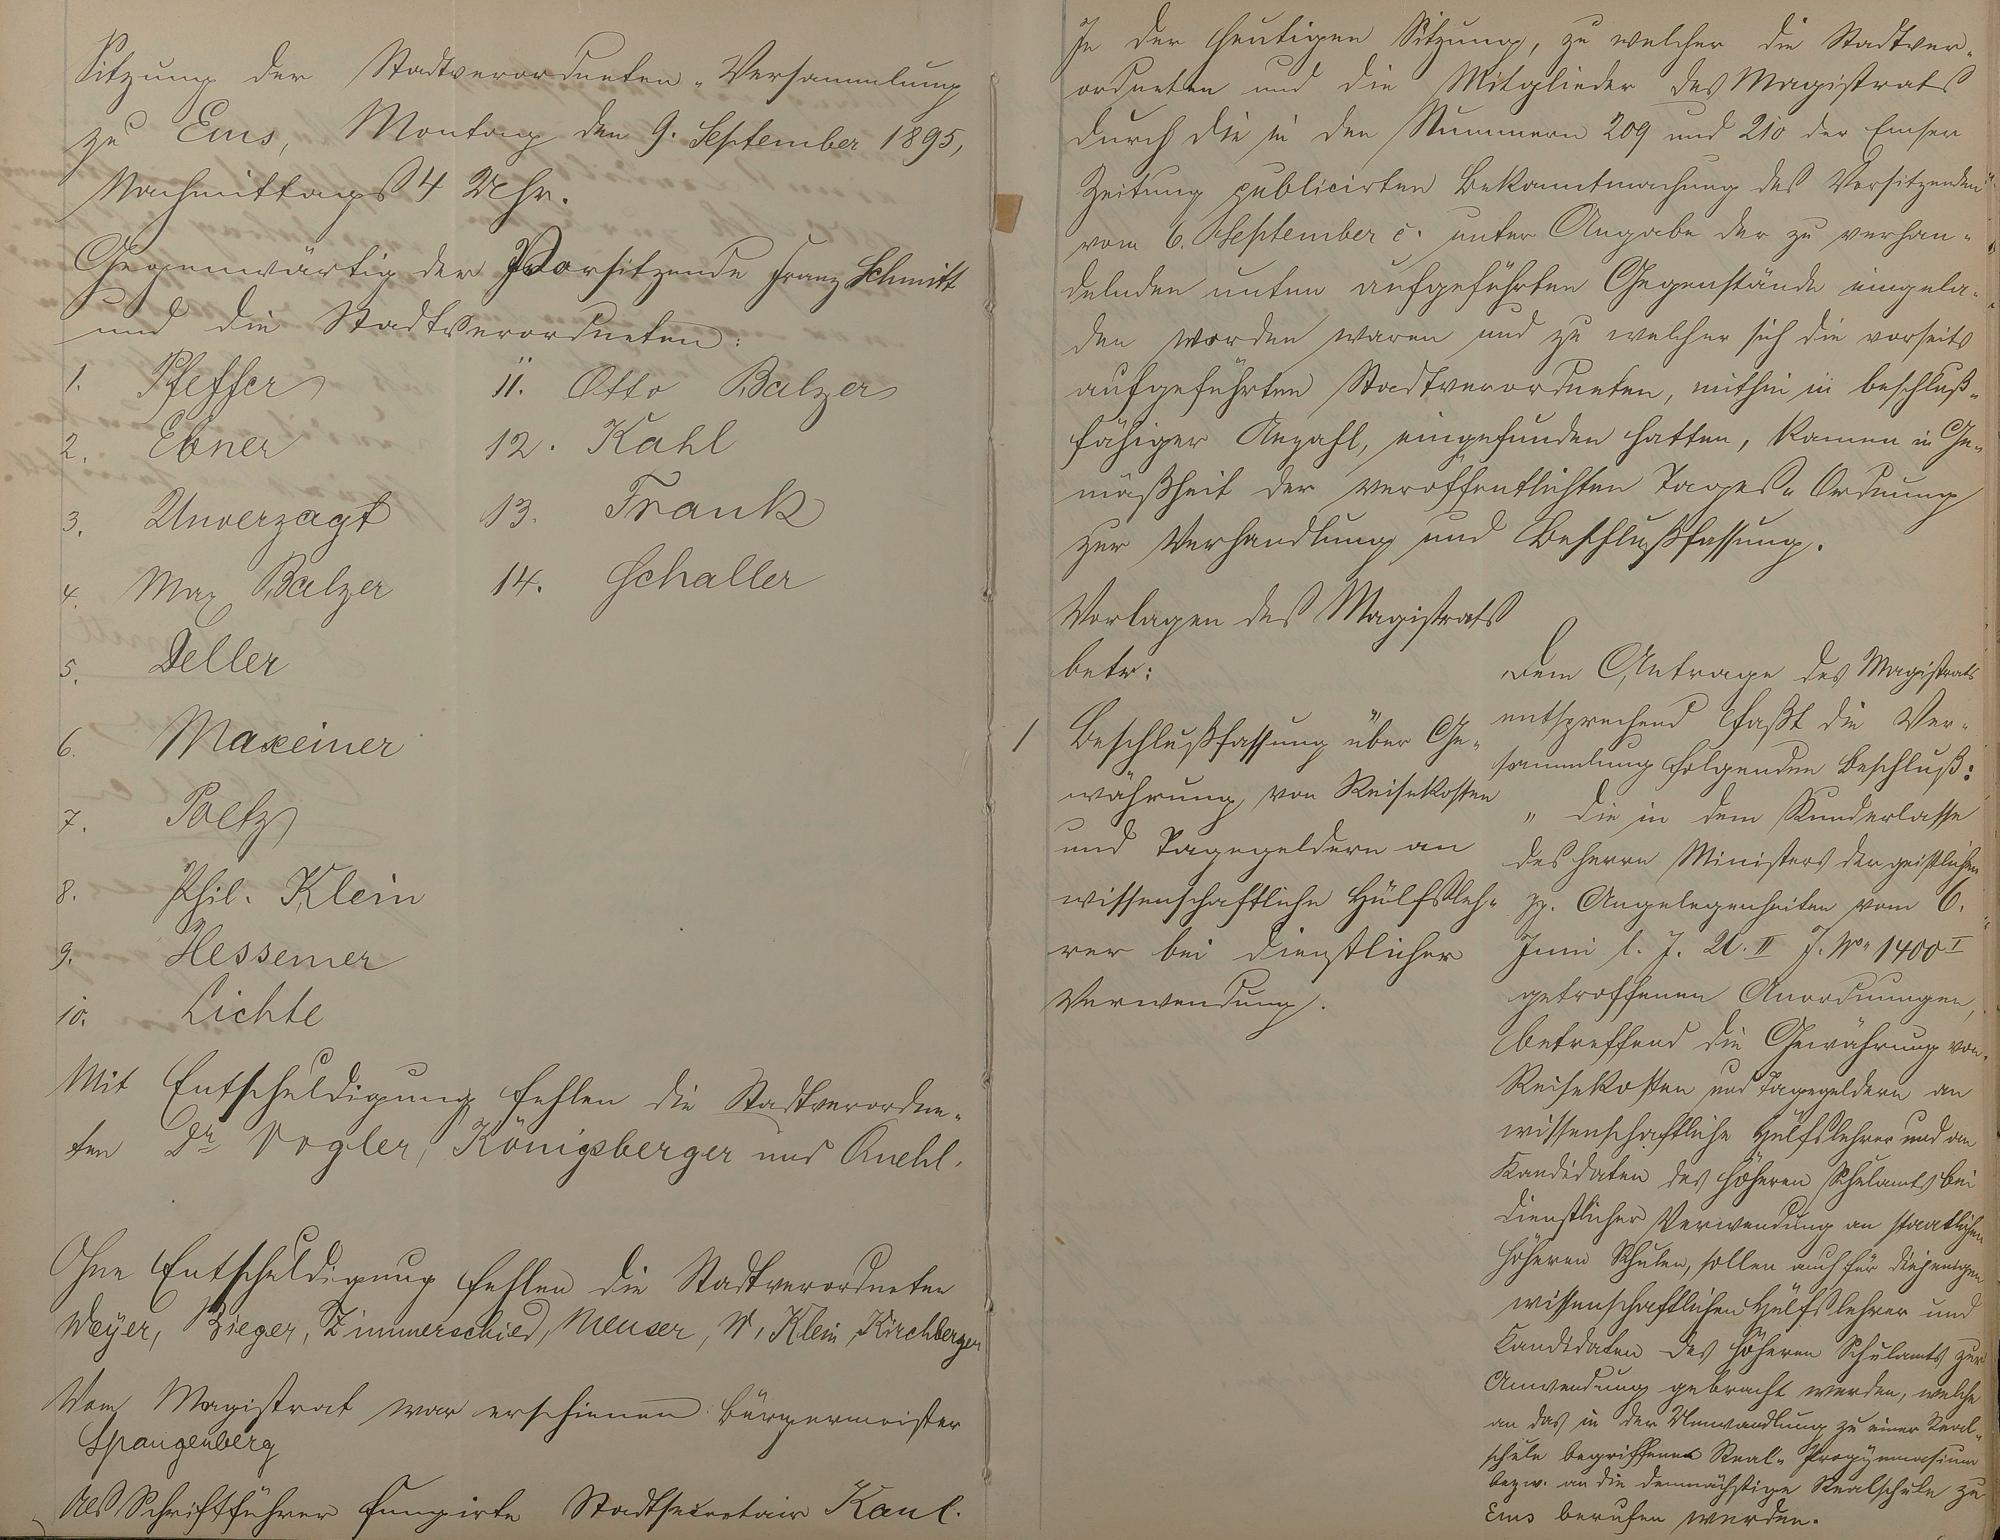 Sitzung der Stadtverordneten-Versammlung
zu Ems, Montag den 9. September 1895,
Nachmittags 4 Uhr.
Gegenwärtig der Vorsitzende Franz Schmitt
und die Stadtverordneten:
1. Pfeffer
2. Ebner
3. Unverzagt
4. Max Balzer
5. Deller
6. Maxeiner
7. Poetz
8. Phil. Klein
9. Hessemer
10. Lichte
11. Otto Balzer
12. Kahl
13. Frank
14. Schaller
Mit Entschuldigung fehlen die Stadtverordne-
ten Dr Vogler, Königsberger und
Ohne Entschuldigung fehlen die Stadtverordneten
Weyer, Rieger, Zimmerschied, Meuser, W. Klein, Kirchberger
Vom Magistrat war erschienen: Bürgermeister
Spangenberg
Als Schriftführer fungirte Stadtsecretair Kaul.
In der heutigen Sitzung, zu welcher die Stadtver-
ordneten und die Mitglieder des Magistrats
durch die in den Nummern 209 und 210 der Emser
Zeitung publicirten Bekanntmachung des Vorsitzenden
vom 6. September c. unter Angabe der zu verhan-
delnden unten aufgeführten Gegenstände eingela-
den worden waren und zu welcher sich die vorseits
aufgeführten Stadtverordneten, mithin in beschluß-
fähiger Anzahl, eingefunden hatten, kamen in Ge-
mäßheit der veröffentlichten Tages-Ordnung
zur Verhandlung und Beschlußfassung.
Vorlagen des Magistrats
betr:
1 Beschlußfassung über Ge-
währung von Reisekosten
und Tagegeldern an
wissenschaftliche Hülfsleh-
rer bei dienstlicher
Verwendung.
Dem Antrage des Magistrats
entsprechend faßt die Ver-
sammlung folgenden Beschluß:
„ Die in dem Runderlasse
des Herrn Ministers der geistlichen
pp. Angelegenheiten vom 6.
Juni l. J. U. II J. No 1400 I
getroffenen Anordnungen,
betreffend die Gewährung von
Reisekosten und Tagegeldern an
wissenschaftliche Hülfslehrer und an
Kandidaten des höheren Schulamts bei
dienstlicher Verwendung an staatlichen
höheren Schulen, sollen auch für diejenigen
wissenschaftlichen Hülfslehrer und
Kandidaten des höheren Schulamts zur
Anwendung gebracht werden, welche
an das in der Umwandlung zu einer Real-
schule begriffene Real-Progymnasium
bezw. an die demnächstige Realschule zu
Ems berufen werden.